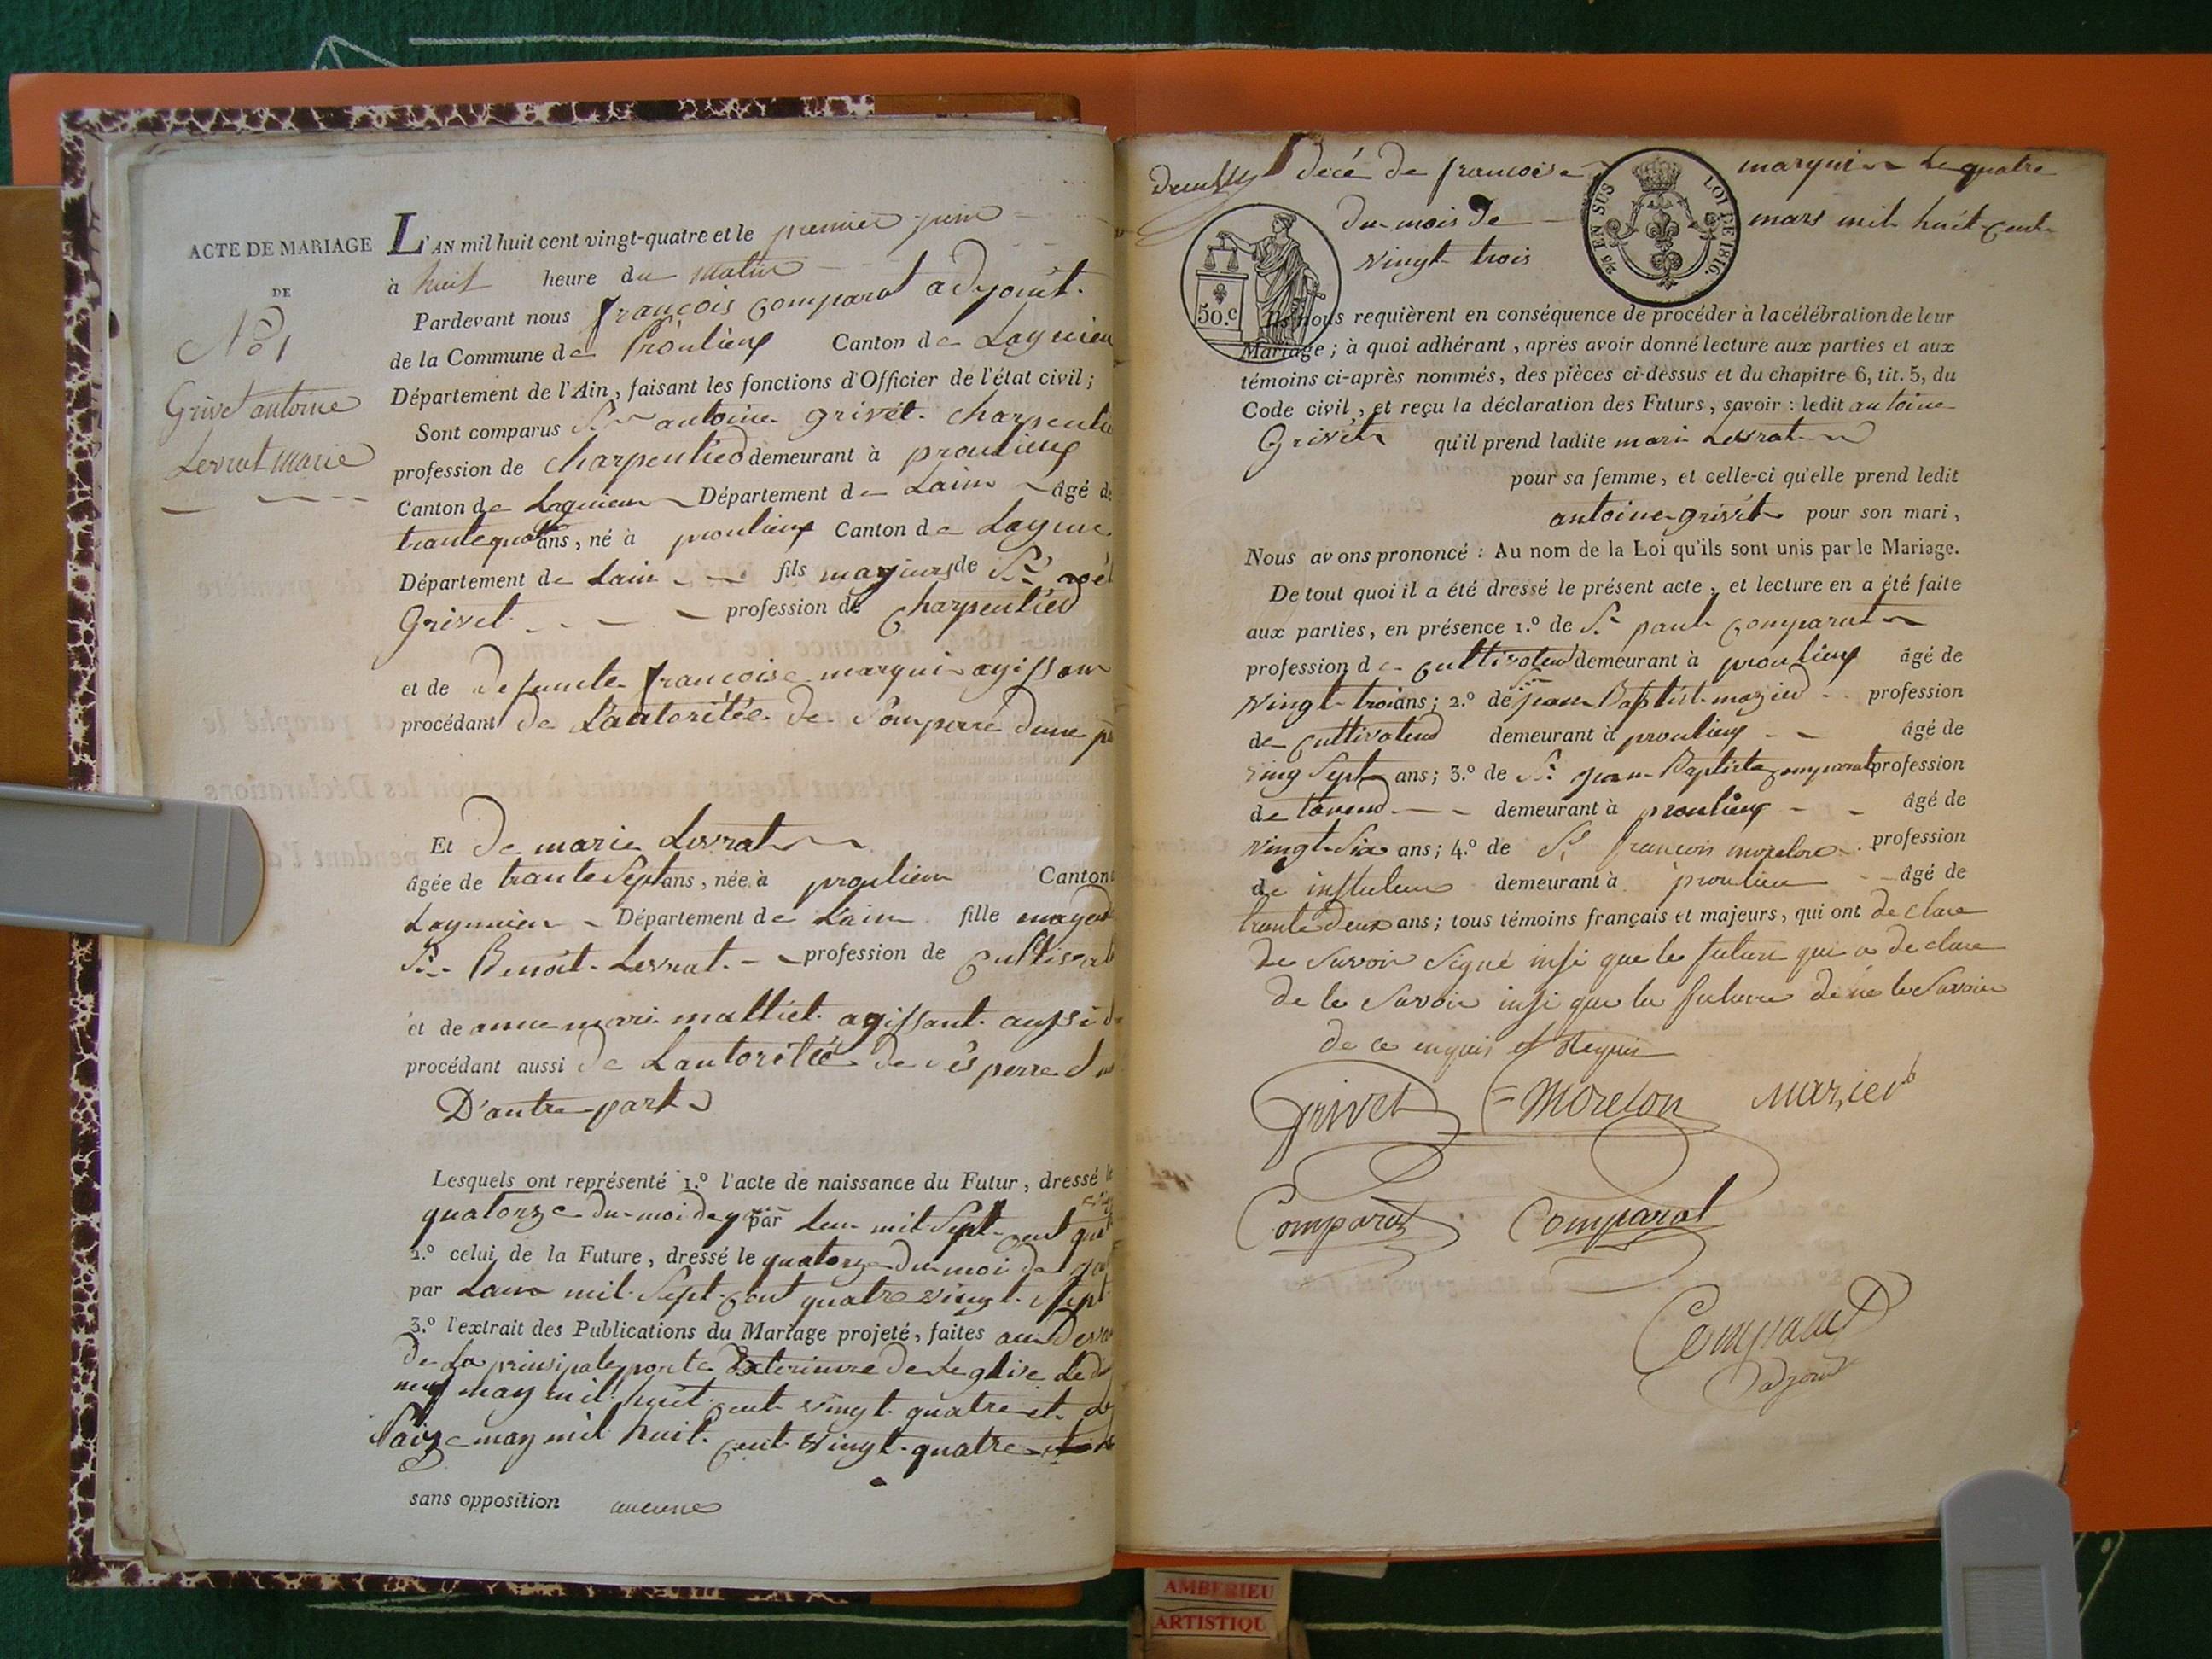 ACTE DE MARIAGE
DE
N.º 1
Grivet antoine
Levrat Marie
L'AN mil huit cent vingt-quatre et le premier juin
à huit heure du matin
Pardevant nous françois Comparat adjoint
de la Commune de Proulieux Canton de Lagnieu
Département de l'Ain, faisant les fonctions d'Officier de l'état civil;
Sont comparus Sr antoine grivet charpentie
profession de charpentier demeurant à proulieux
Canton de Lagnieu Département de Lain âgé de
trante ans, né à proulieux Canton de
Département de Lain fils majeur de Sr
Grivet profession de charpentier
et de defunte francoise marqui agissant
procédant de Lautoritée de Sompere dune
Et de marie Levrat
âgée de trante Sept ans, née à proulieu Canton
Lagnieu Département de Lain fille
Sr Benoit Levrat profession de
et de anne marie mattiet agissant aussi
procédant aussi de Lautoritée de ses perre
D'autre part
Lesquels ont représenté 1.º l'acte de naissance du Futur, dressé le
quatorze du moi de par Lan mil Sept cent
2.º celui de la Future, dressé le quatorze du moi de
par Lan mil Sept cent quatre vingt Sept
3.º l'extrait des Publications du Mariage projeté, faites au
de La prinsipale porte Exterieure de Leglise Le
neuf may mil huit cent vingt quatre et
Saize may mil huit cent vingt quatre
sans opposition aucune
decé de francoise marquin Le quatre
du mois de mars mil huit cent
vingt trois
50.C
EN SUS
LOI DE 1816.
Ils nous requièrent en conséquence de procéder à la célébration de leur
Mariage; à quoi adhérant, après avoir donné lecture aux parties et aux
témoins ci-après nommés, des pièces ci-dessus et du chapitre 6, tit. 5, du
Code civil, et reçu la déclaration des Futurs, savoir: ledit antoine
Grivet qu'il prend ladite marie Levrat
pour sa femme, et celle-ci qu'elle prend ledit
antoine grivet pour son mari,
Nous avons prononcé: Au nom de la Loi qu'ils sont unis par le Mariage.
De tout quoi il a été dressé le présent acte, et lecture en a été faite
aux parties, en présence 1.º de Sr paul Comparat
profession de Cultivateur demeurant à proulieux âgé de
vingt trois ans; 2.º de jean Baptiste mazier profession
de Cultivateur demeurant à proulieux âgé de
ving Sept ans; 3.º de Sr jean Baptiste comparat profession
de demeurant à proulieux âgé de
vingt Six ans; 4.º de Sr francois morelon profession
de demeurant à proulieu âgé de
trante deux ans; tous témoins français et majeurs, qui ont de clare
de Savoir Signé insi que le futur qui a de clare
de le Savoir insi que la future de ne le Savoir
de ce enquis et Requis
Grivet Morelon Mazier
Comparat Comparat
Comparat
adjoint
AMBERIEU
ARTISTIQU